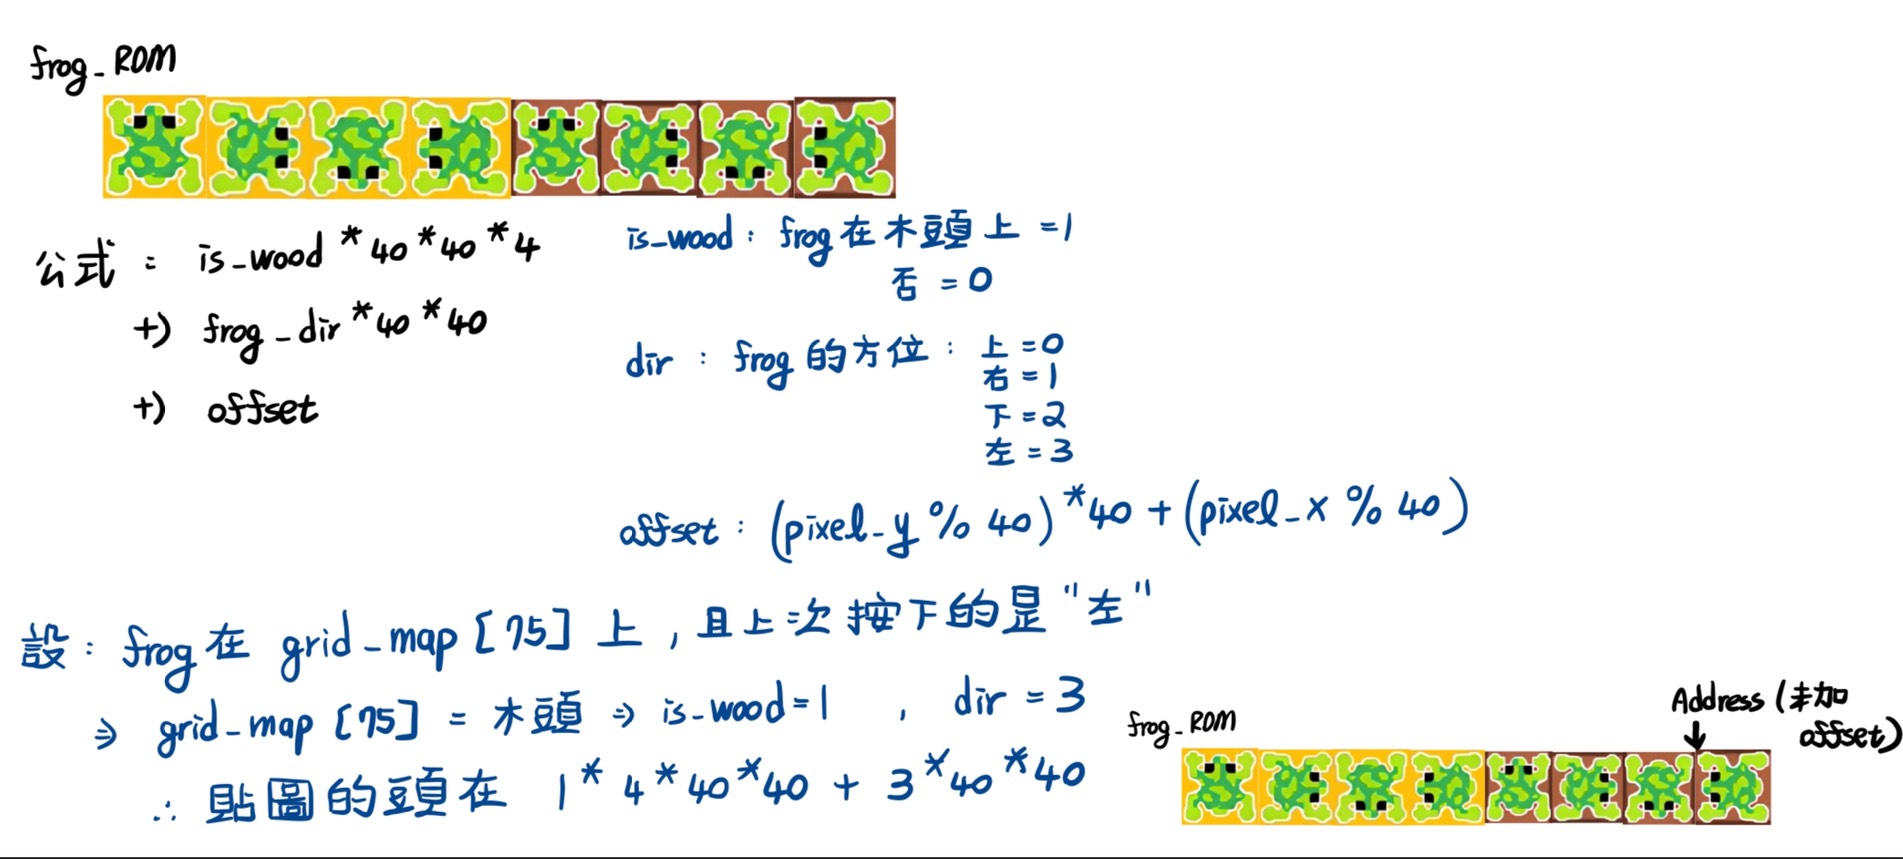 frog_ROM
公式 : is_wood * 40 * 40 * 4
+) frog_dir * 40 * 40
+) offset
is_wood : frog 在木頭上 = 1
否 = 0
dir : frog 的方位 : 上 = 0
右 = 1
下 = 2
左 = 3
offset : (pixel_y % 40) * 40 + (pixel_x % 40)
設 : frog 在 grid_map [75] 上 , 且上次按下的是 "左"
⇒ grid_map [75] = 木頭 ⇒ is_wood = 1 , dir = 3
∴ 貼圖的頭在 1 * 4 * 40 * 40 + 3 * 40 * 40
frog_ROM
Address (未加
offset)